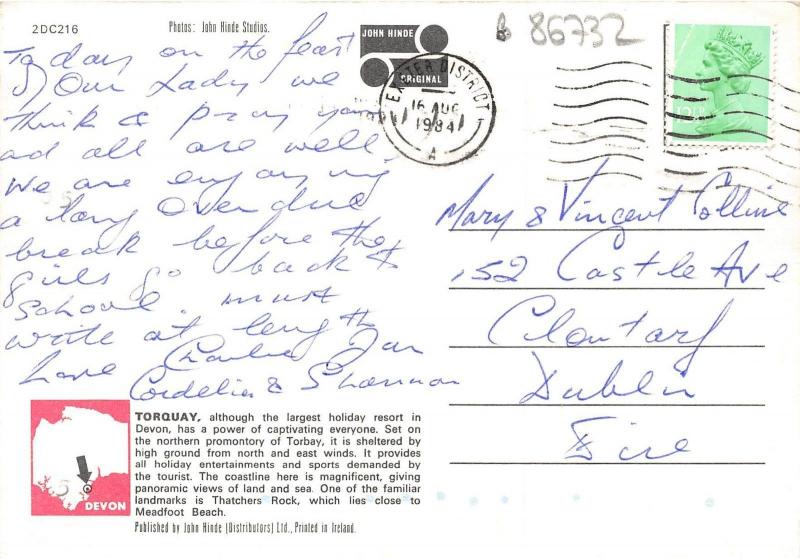 2DC216
Photos: John Hinde Studios.
JOHN HINDE
ORIGINAL
B 86732
EXETER DISTRICT
16 AUG
1984
A
Today on the feast
of Our Lady we
think & pray you
ad all are well.
We are enjoying
a long over due
break before the
girls go back to
school. must
write at length
Love Charlie Jan
Cordelia & Shannon
Mary & Vincent Collins
152 Castle Ave
Clontarf
Dublin
Eire
DEVON
TORQUAY, although the largest holiday resort in
Devon, has a power of captivating everyone. Set on
the northern promontory of Torbay, it is sheltered by
high ground from north and east winds. It provides
all holiday entertainments and sports demanded by
the tourist. The coastline here is magnificent, giving
panoramic views of land and sea. One of the familiar
landmarks is Thatchers Rock, which lies close to
Meadfoot Beach.
Published by John Hinde (Distributors) Ltd., Printed in Ireland.